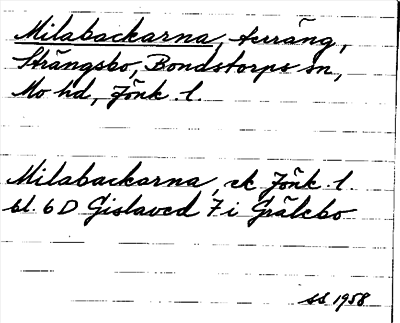 Milabackarna, terräng,
Strängsbo, Bondstorps sn,
Mo hd, Jönk. l.
Milabackarna, ek Jönk. l.
bl. 6 D Gislaved 7 i Grälebo
SS 1958